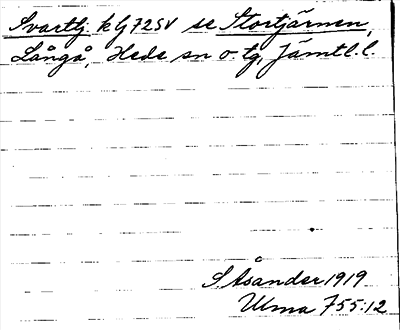 Svarttj. k Gj 72 SV se Stortjärnen,
Långå, Hede sn o. tg, Jämtl. l.
S Åsander 1919
Ulma 755:12